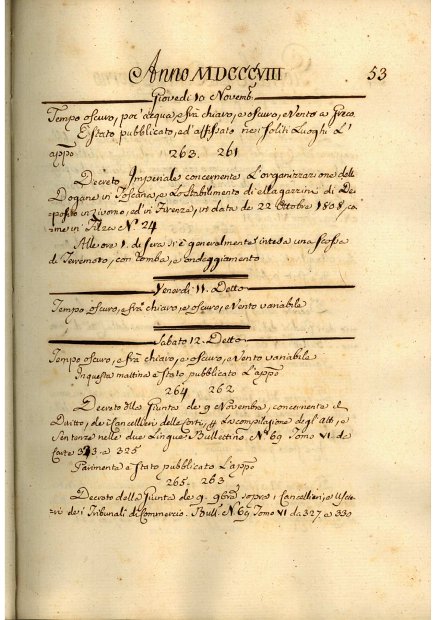 Anno MDCCCVIII 53
Giovedi 10 Novemb.
Tempo oscuro, poi acqua, e frà chiaro, e oscuro, e Vento a Greco.
E stato pubblicato, ed affissato nei soliti Luoghi L'
appo
263. 261
Decreto Imperiale concernente L'organizzazione delle
Dogane in Toscana, e Lo Stabilimento di Magazzini di De
posito in Livorno, ed in Firenze, in data de 22 Ottobre 1808, co
me in Filza No. 24
Alle ore 1. di sera si è generalmente intesa una scossa
di Terremoto, con romba, e ondeggiamento
Venerdi 11. Detto
Tempo oscuro, e frà chiaro, e oscuro, e Vento variabile
Sabato 12. Detto
Tempo oscuro, e frà chiaro, e oscuro, e Vento variabile
In questa mattina è stato pubblicato L'appo
264 262
Decreto della Giunta de 9 Novembra, concernente il
Dritto, de i Cancellieri delle Corti, La compilazione degl'Atti, e
Sentenze nelle due Lingue Bullettino No. 69 Tomo VI. da
Carte 323 a 325
Parimente è stato pubblicato L'appo
265. 263
Decreto della Giunta de 9. 9bra sopra i Cancellieri, e Usce
ri de i Tribunali di Commercio. Bull. N. 69 Tomo VI da 327 a 330